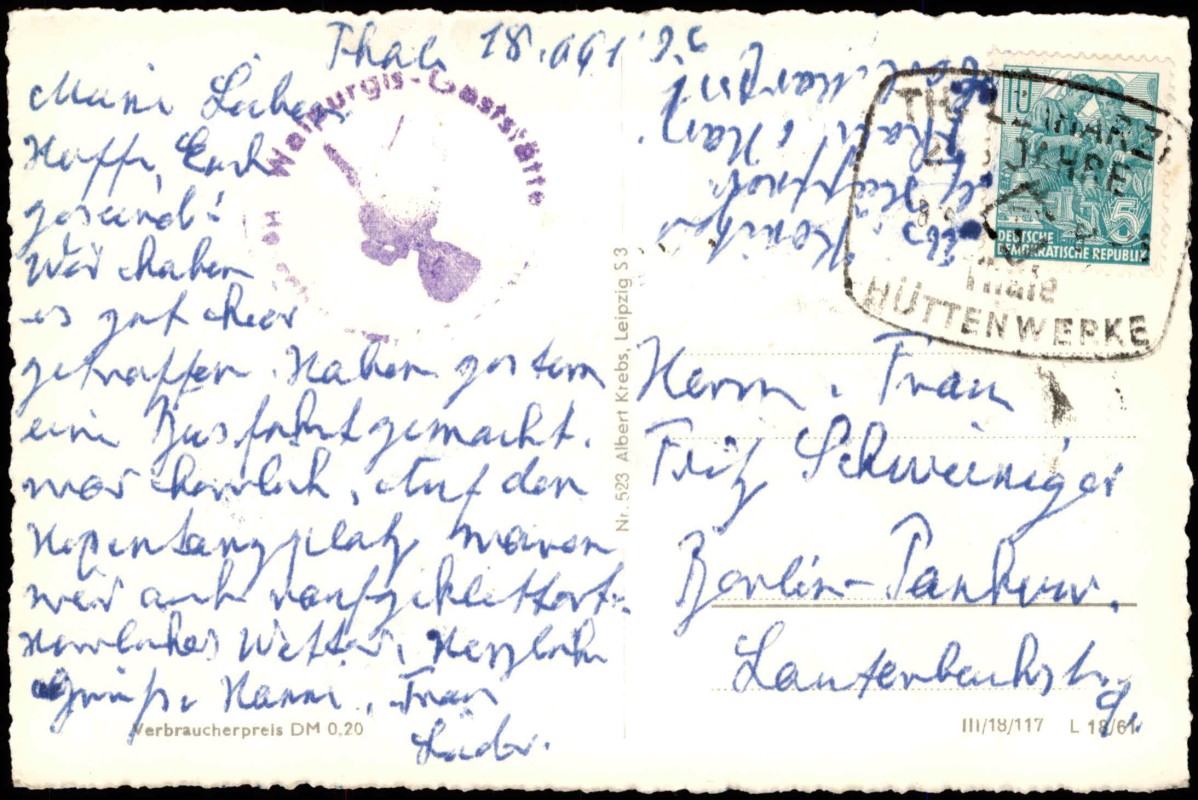 Thale 18.
Meine Lieben
Hoffe, Euch
gesund!
Wir haben
es gut hier
getroffen. Haben gestern
eine Busfahrt gemacht.
war herrlich. Auf den
Hexentanzplatz waren
wir auch raufgeklettert.
Herrliches Wetter. Herzliche
Grüße Hanni, Frau
Verbraucherpreis DM 0,20
Walpurgis-Gaststätte
Nr. 523 Albert Krebs, Leipzig S 3
Abs.
Thale Harz
10
5
DEUTSCHE
DEMOKRATISCHE REPUBLIK
JAHRE
Thale
HÜTTENWERKE
Herrn u. Frau
Fritz Schweiniger
Berlin-Pankow.
Lauterbachstr.
9.
III/18/117 L 18/61